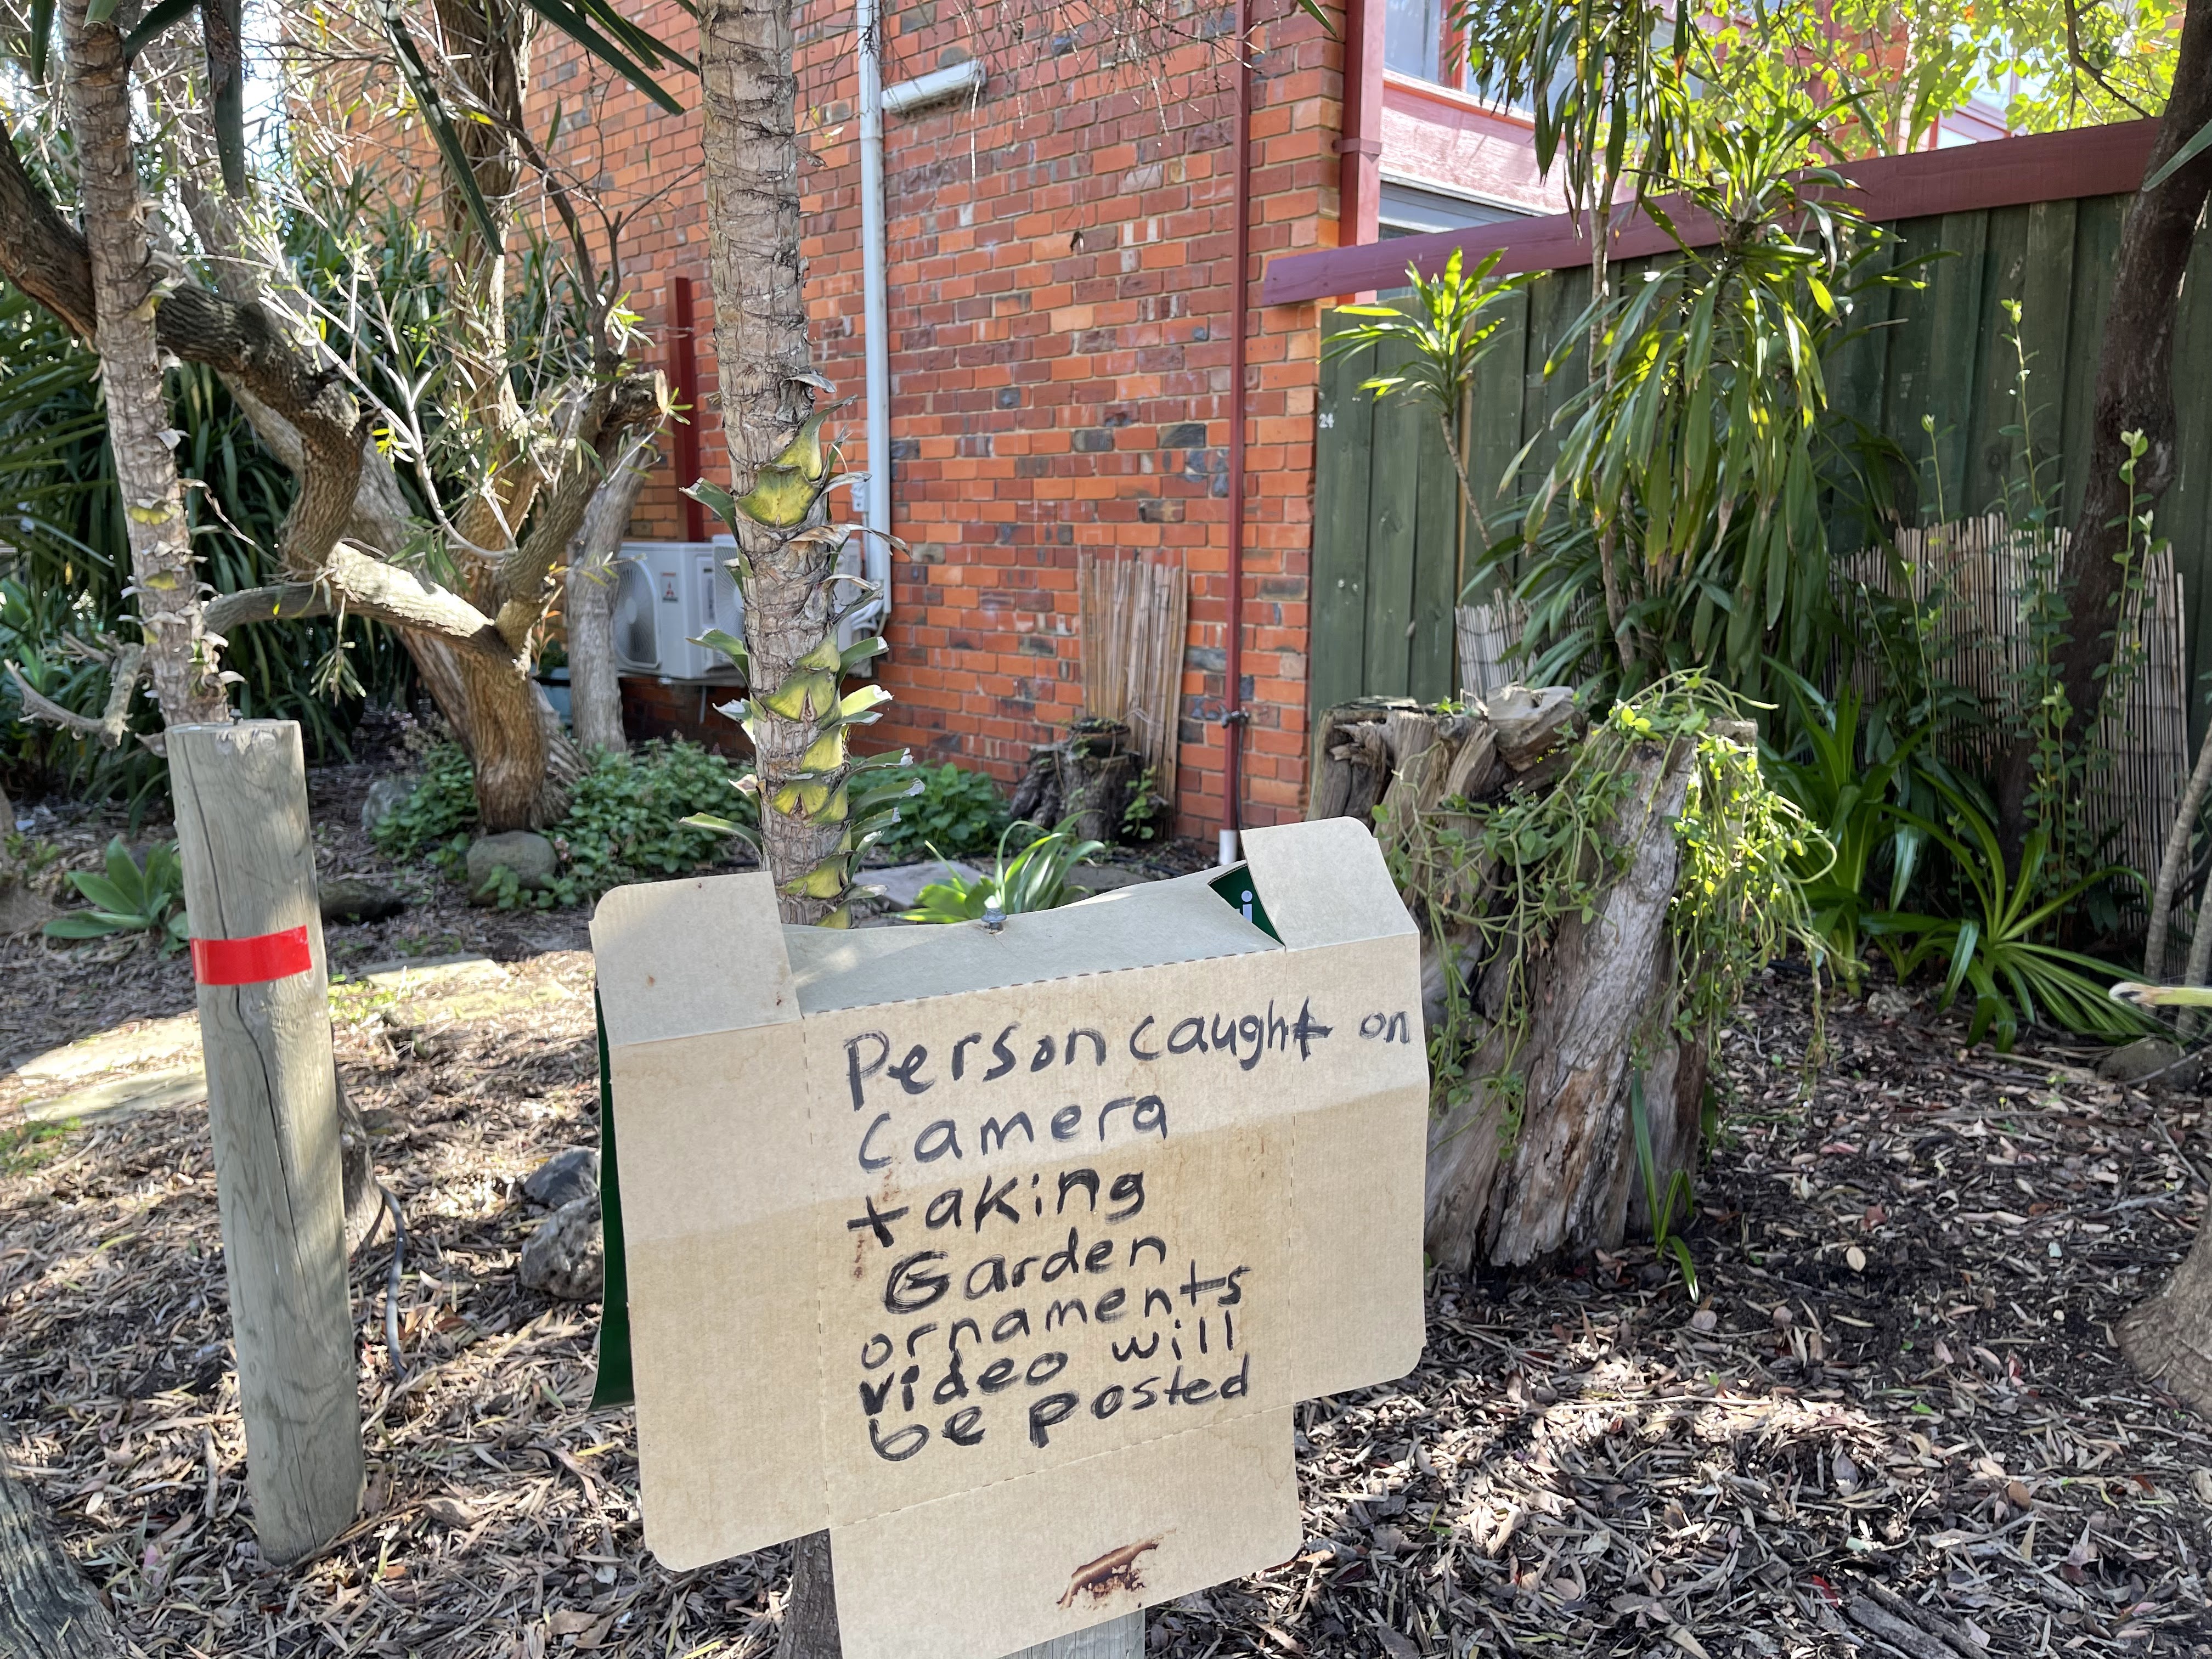 24
Person caught on
camera
taking
Garden
ornaments
video will
be posted